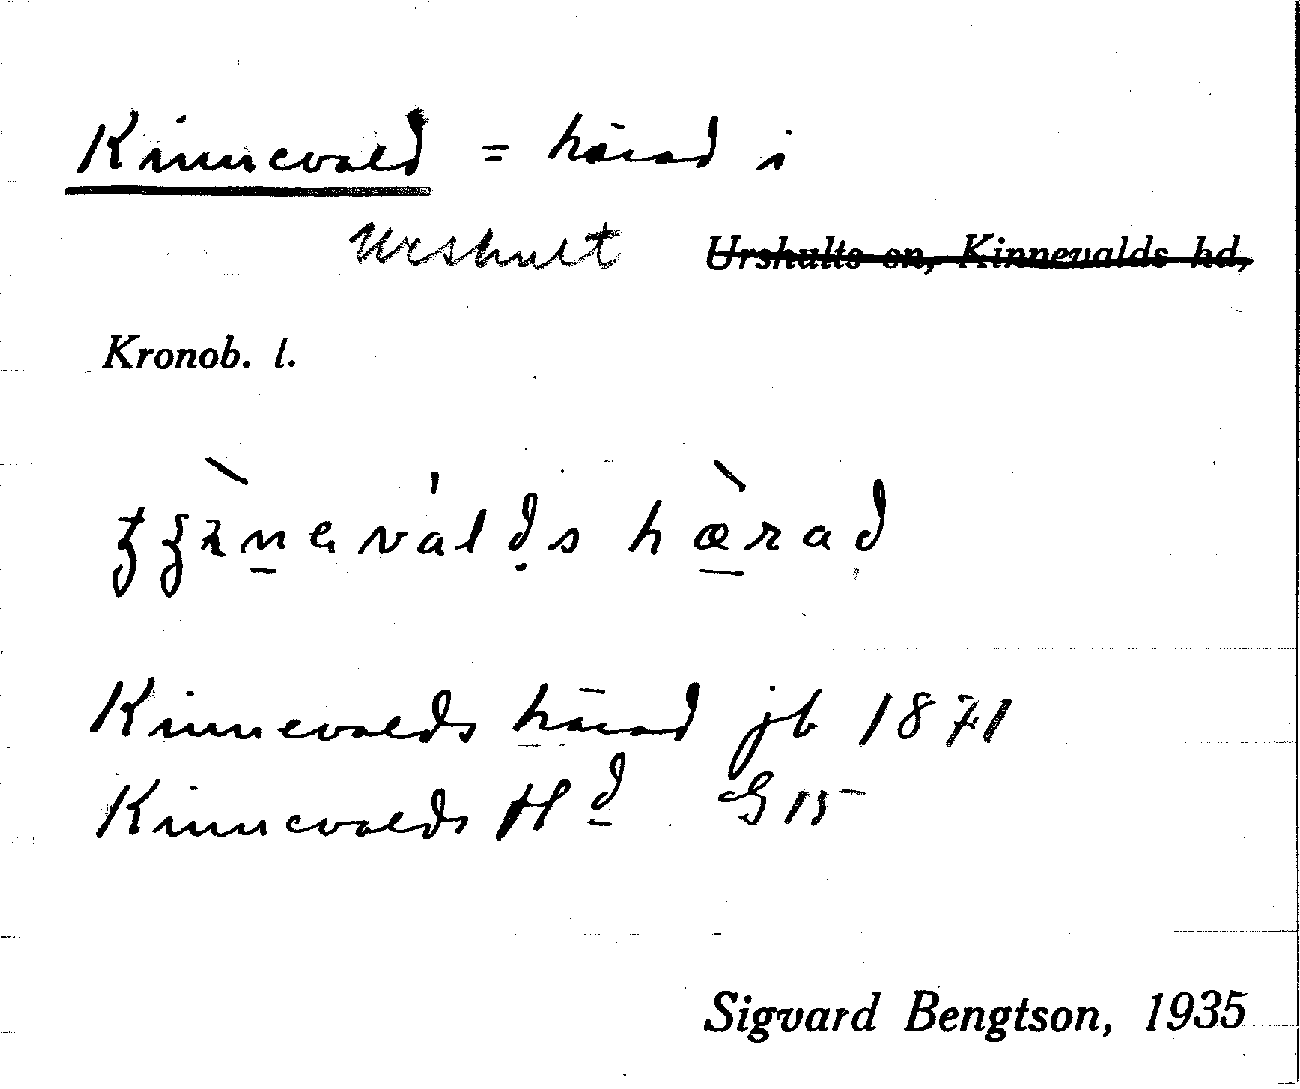 Kinnevald = härad i
Urshult Urshults sn, Kinnevalds hd,
Kronob. l.
härad
Kinnevalds härad jb 1871
Kinnevalds Hd G 15
Sigvard Bengtson, 1935